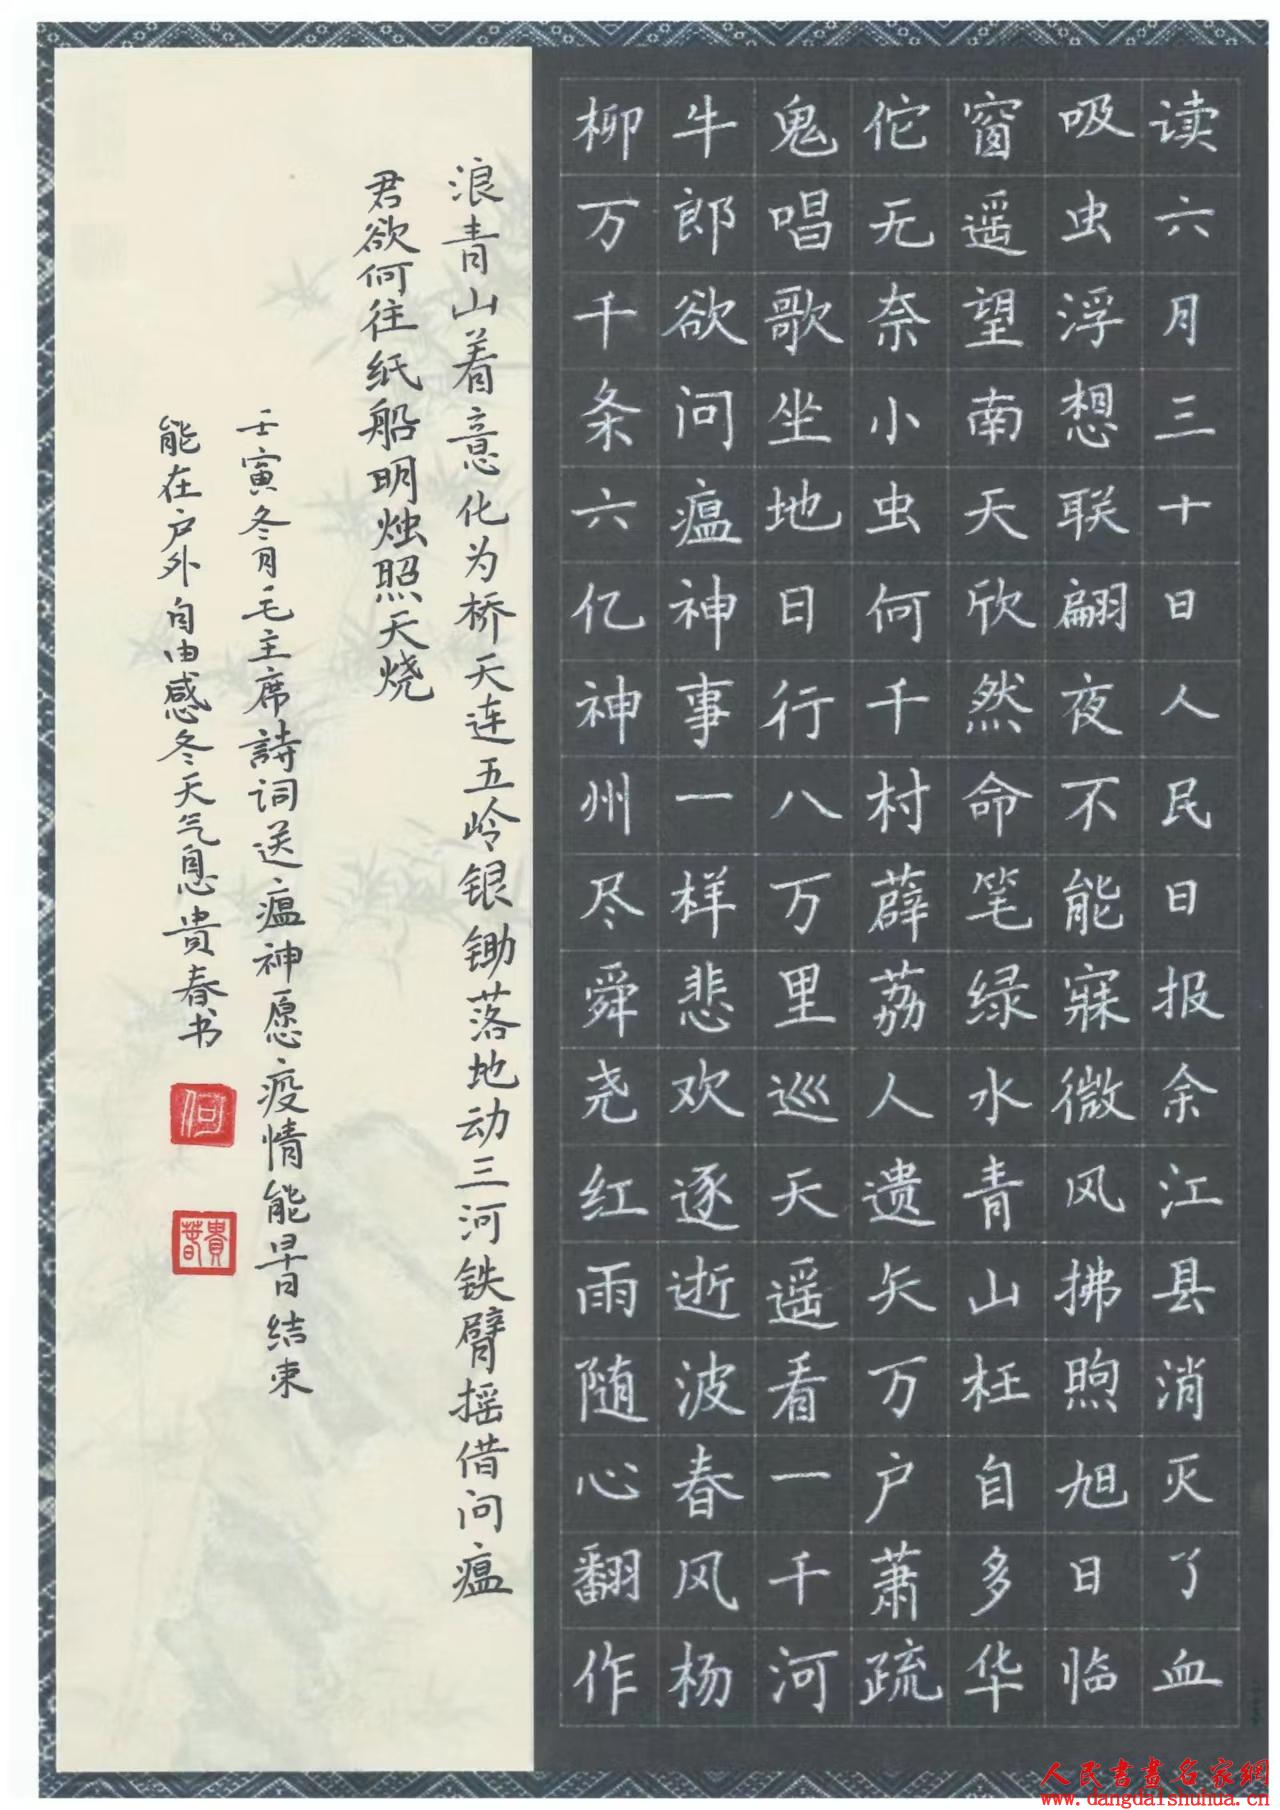 读六月三十日人民日报余江县消灭了血
吸虫浮想联翩夜不能寐微风拂煦旭日临
窗遥望南天欣然命笔绿水青山枉自多华
佗无奈小虫何千村薜荔人遗矢万户萧疏
鬼唱歌坐地日行八万里巡天遥看一千河
牛郎欲问瘟神事一样悲欢逐逝波春风杨
柳万千条六亿神州尽舜尧红雨随心翻作
浪青山着意化为桥天连五岭银锄落地动三河铁臂摇借问瘟
君欲何往纸船明烛照天烧
壬寅冬月毛主席詩词送瘟神愿疫情能早日结束
能在户外自由感冬天气息贵春书
何
貴春
人民書畫名家網
www.dangdaishuhua.cn